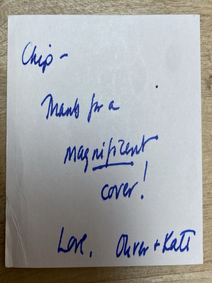 Chip –
Thanks for a
magnificent
cover!
Love, Oliver + Kati